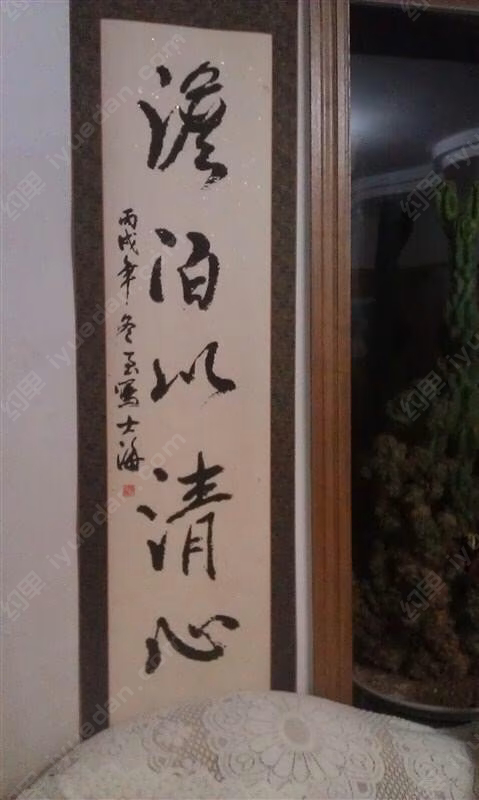 澹泊以清心
丙戌年冬至写士海
约单 iyuedan.com